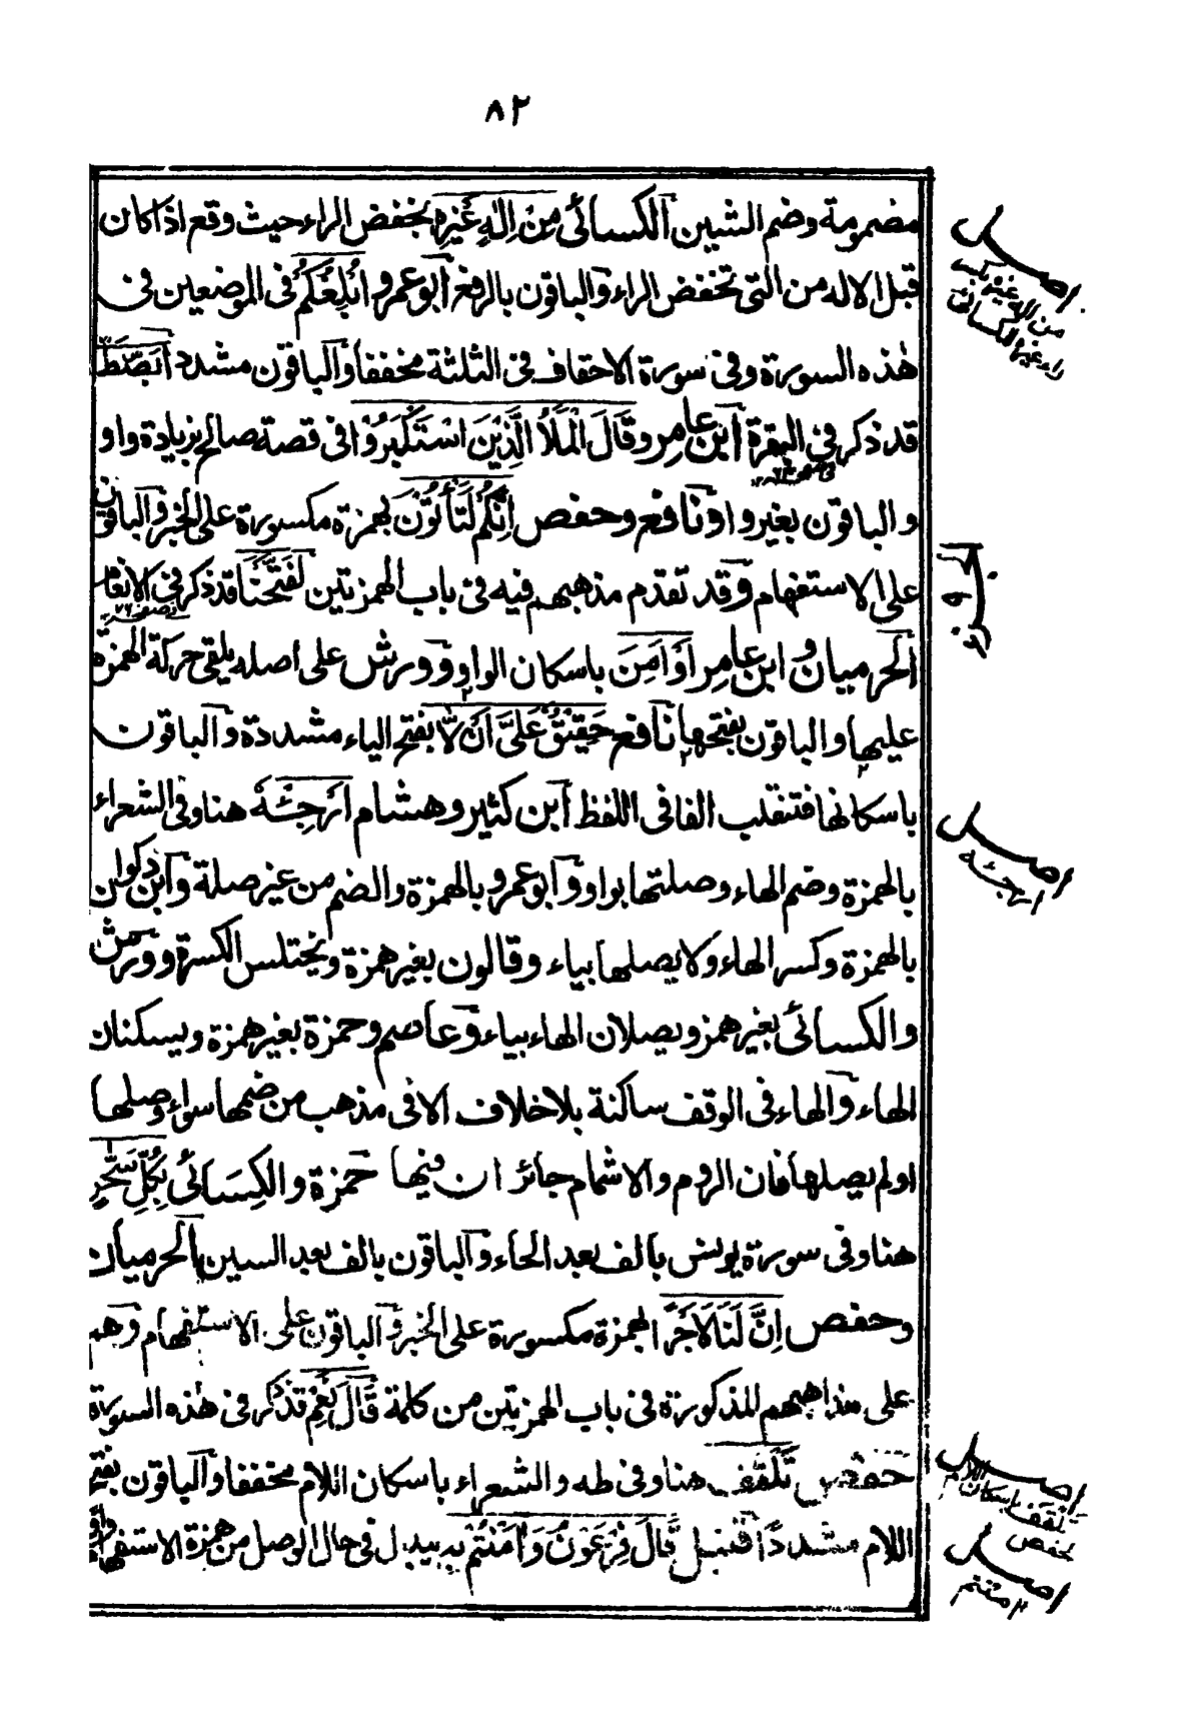 ٨٢
مضمومة وضم الشين الكسائى مِنْ اِلٰهٍ غَيْرِهِ بخفض الراء حيث وقع اذا كان
قبل الاله من التى تخفض الراء والباقون بالرفع ابو عمرو اُبْلِغُكُمْ فى الموضعين فى
هٰذه السورة وفى سورة الاحقاف فى الثلثة مخففا والباقون مشددا بَصْطَةً
قد ذكر فى البقرة ابن عامر وَقَالَ الْمَلَأُ الَّذِيْنَ اسْتَكْبَرُوْا فى قصة صالح بزيادة واو
والباقون بغير واو نافع وحفص اِنَّكُمْ لَتَأْتُوْنَ بهمزة مكسورة على الخبر والباقون
على الاستفهام وقد تقدم مذهبهم فيه فى باب الهمزتين لَفَتَحْنَا قد ذكر فى الانعام
الحرميان وابن عامر اَوْ اَمِنَ باسكان الواو وورش على اصله يلقى حركة الهمزة
عليها والباقون بفتحها نافع حَقِيْقٌ عَلَىَّ اَنْ لَّا بفتح الياء مشددة والباقون
باسكانها فتنقلب الفا فى اللفظ ابن كثير وهشام اَرْجِئْهُ هنا وفى الشعراء
بالهمزة وضم الهاء وصلتها بواو وابو عمرو بالهمزة والضم من غير صلة وابن ذكوان
بالهمزة وكسر الهاء ولا يصلها بياء وقالون بغير همزة ويختلس الكسرة وورش
والكسائى بغير همز ويصلان الهاء بياء وعاصم وحمزة بغير همزة ويسكنان
الهاء والهاء فى الوقف ساكنة بلا خلاف الا فى مذهب من ضمها سواء وصلها
او لم يصلها فان الروم والاشمام جائز ان فيها حمزة والكسائى بِكُلِّ سَحّٰرٍ
هنا وفى سورة يونس بالف بعد الحاء والباقون بالف بعد السين الحرميان
وحفص اِنَّ لَنَا لَاَجْرًا بهمزة مكسورة على الخبر والباقون على الاستفهام وهم
على مذاهبهم المذكورة فى باب الهمزتين من كلمة قَالَ نَعَمْ قد ذكر فى هٰذه السورة
حفص تَلْقَفُ هنا وفى طه والشعراء باسكان اللام مخففا والباقون بفتح
اللام مشددًا قنبل قَالَ فِرْعَوْنُ وَاٰمَنْتُمْ بِه يبدل فى حال الوصل من همزة الاستفهام واوا
اصل
من اله غيره بكسر
راء غير الكسائى
الجزء
٩
اصل
ارجئه
اصل
تلقف باسكان اللام
بحفص
اصل
ءامنتم